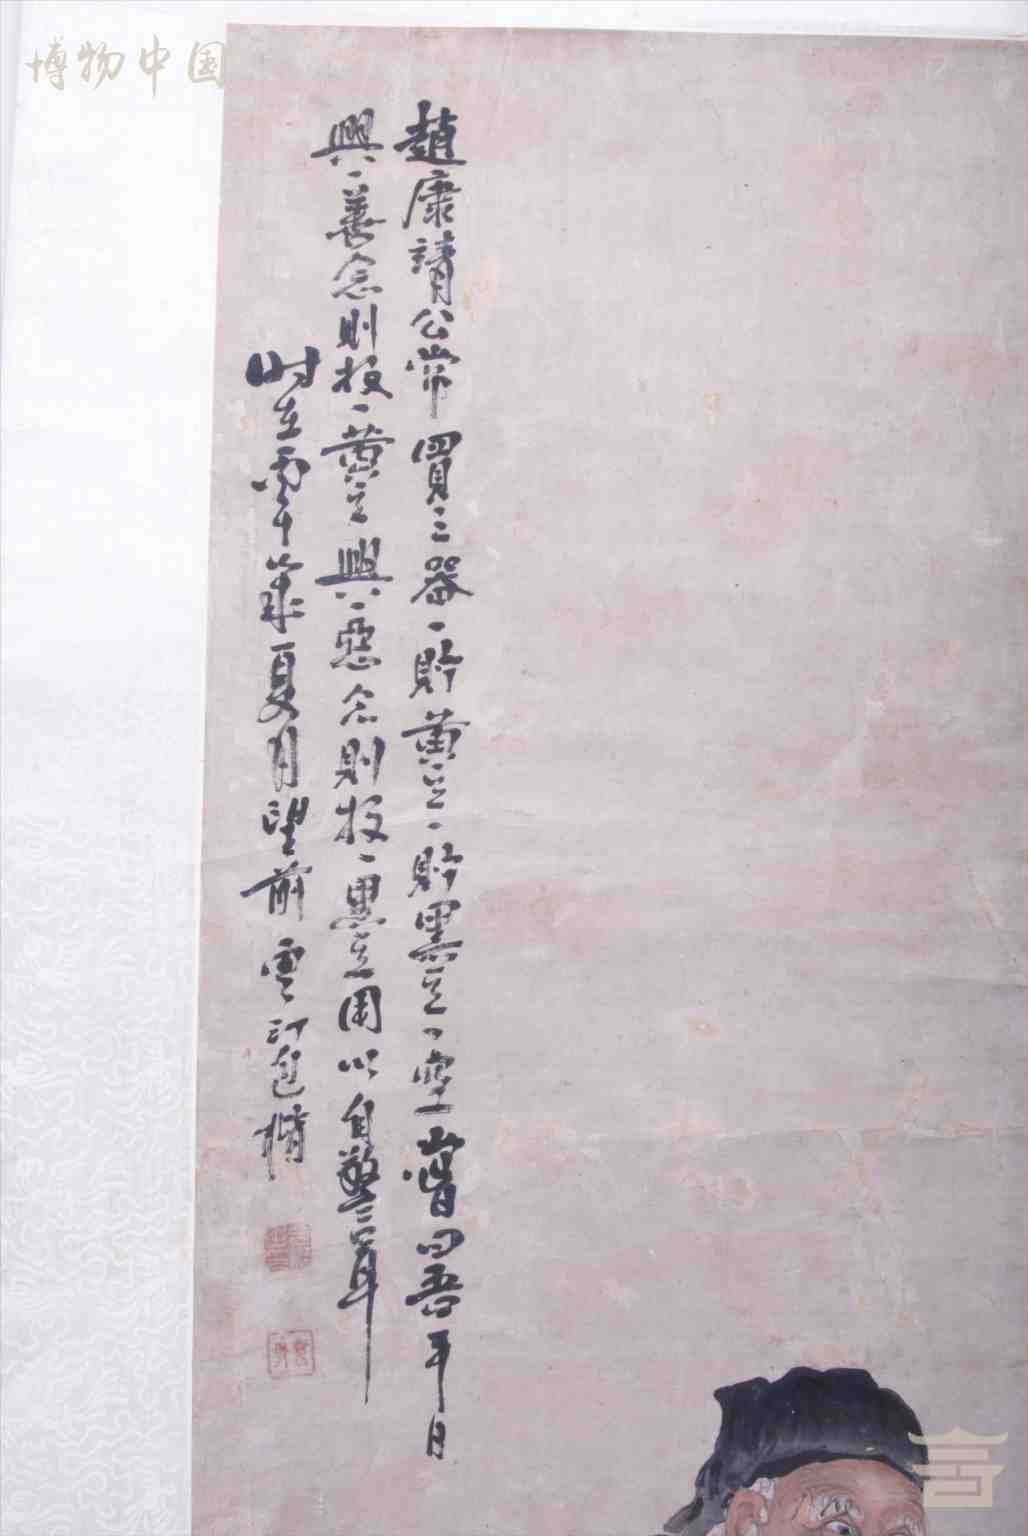 博物中国
趙康靖公常置三器一貯黃豆一貯黑豆一空嘗曰吾平日
興一善念則投一黃豆興一惡念則投一黑豆用以自警耳
時在丙午年夏月望前雲